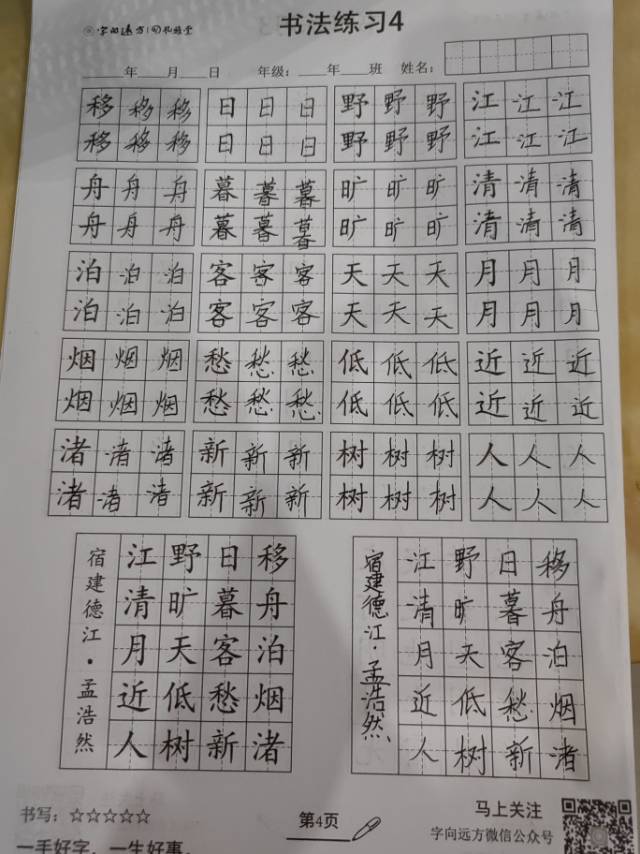 字向远方 书法练习4
____年____月____日 年级:____年____班 姓名:
移移移 日日日 野野野 江江江
移移移 日日日 野野野 江江江
舟舟舟 暮暮暮 旷旷旷 清清清
舟舟舟 暮暮暮 旷旷旷 清清清
泊泊泊 客客客 天天天 月月月
泊泊泊 客客客 天天天 月月月
烟烟烟 愁愁愁 低低低 近近近
烟烟烟 愁愁愁 低低低 近近近
渚渚渚 新新新 树树树 人人人
渚渚渚 新新新 树树树 人人人
移舟泊烟渚
日暮客愁新
野旷天低树
江清月近人
宿建德江·孟浩然
移舟泊烟渚
日暮客愁新
野旷天低树
江清月近人
宿建德江·孟浩然
书写:☆☆☆☆☆
一手好字,一生好事。
第4页
马上关注
字向远方微信公众号